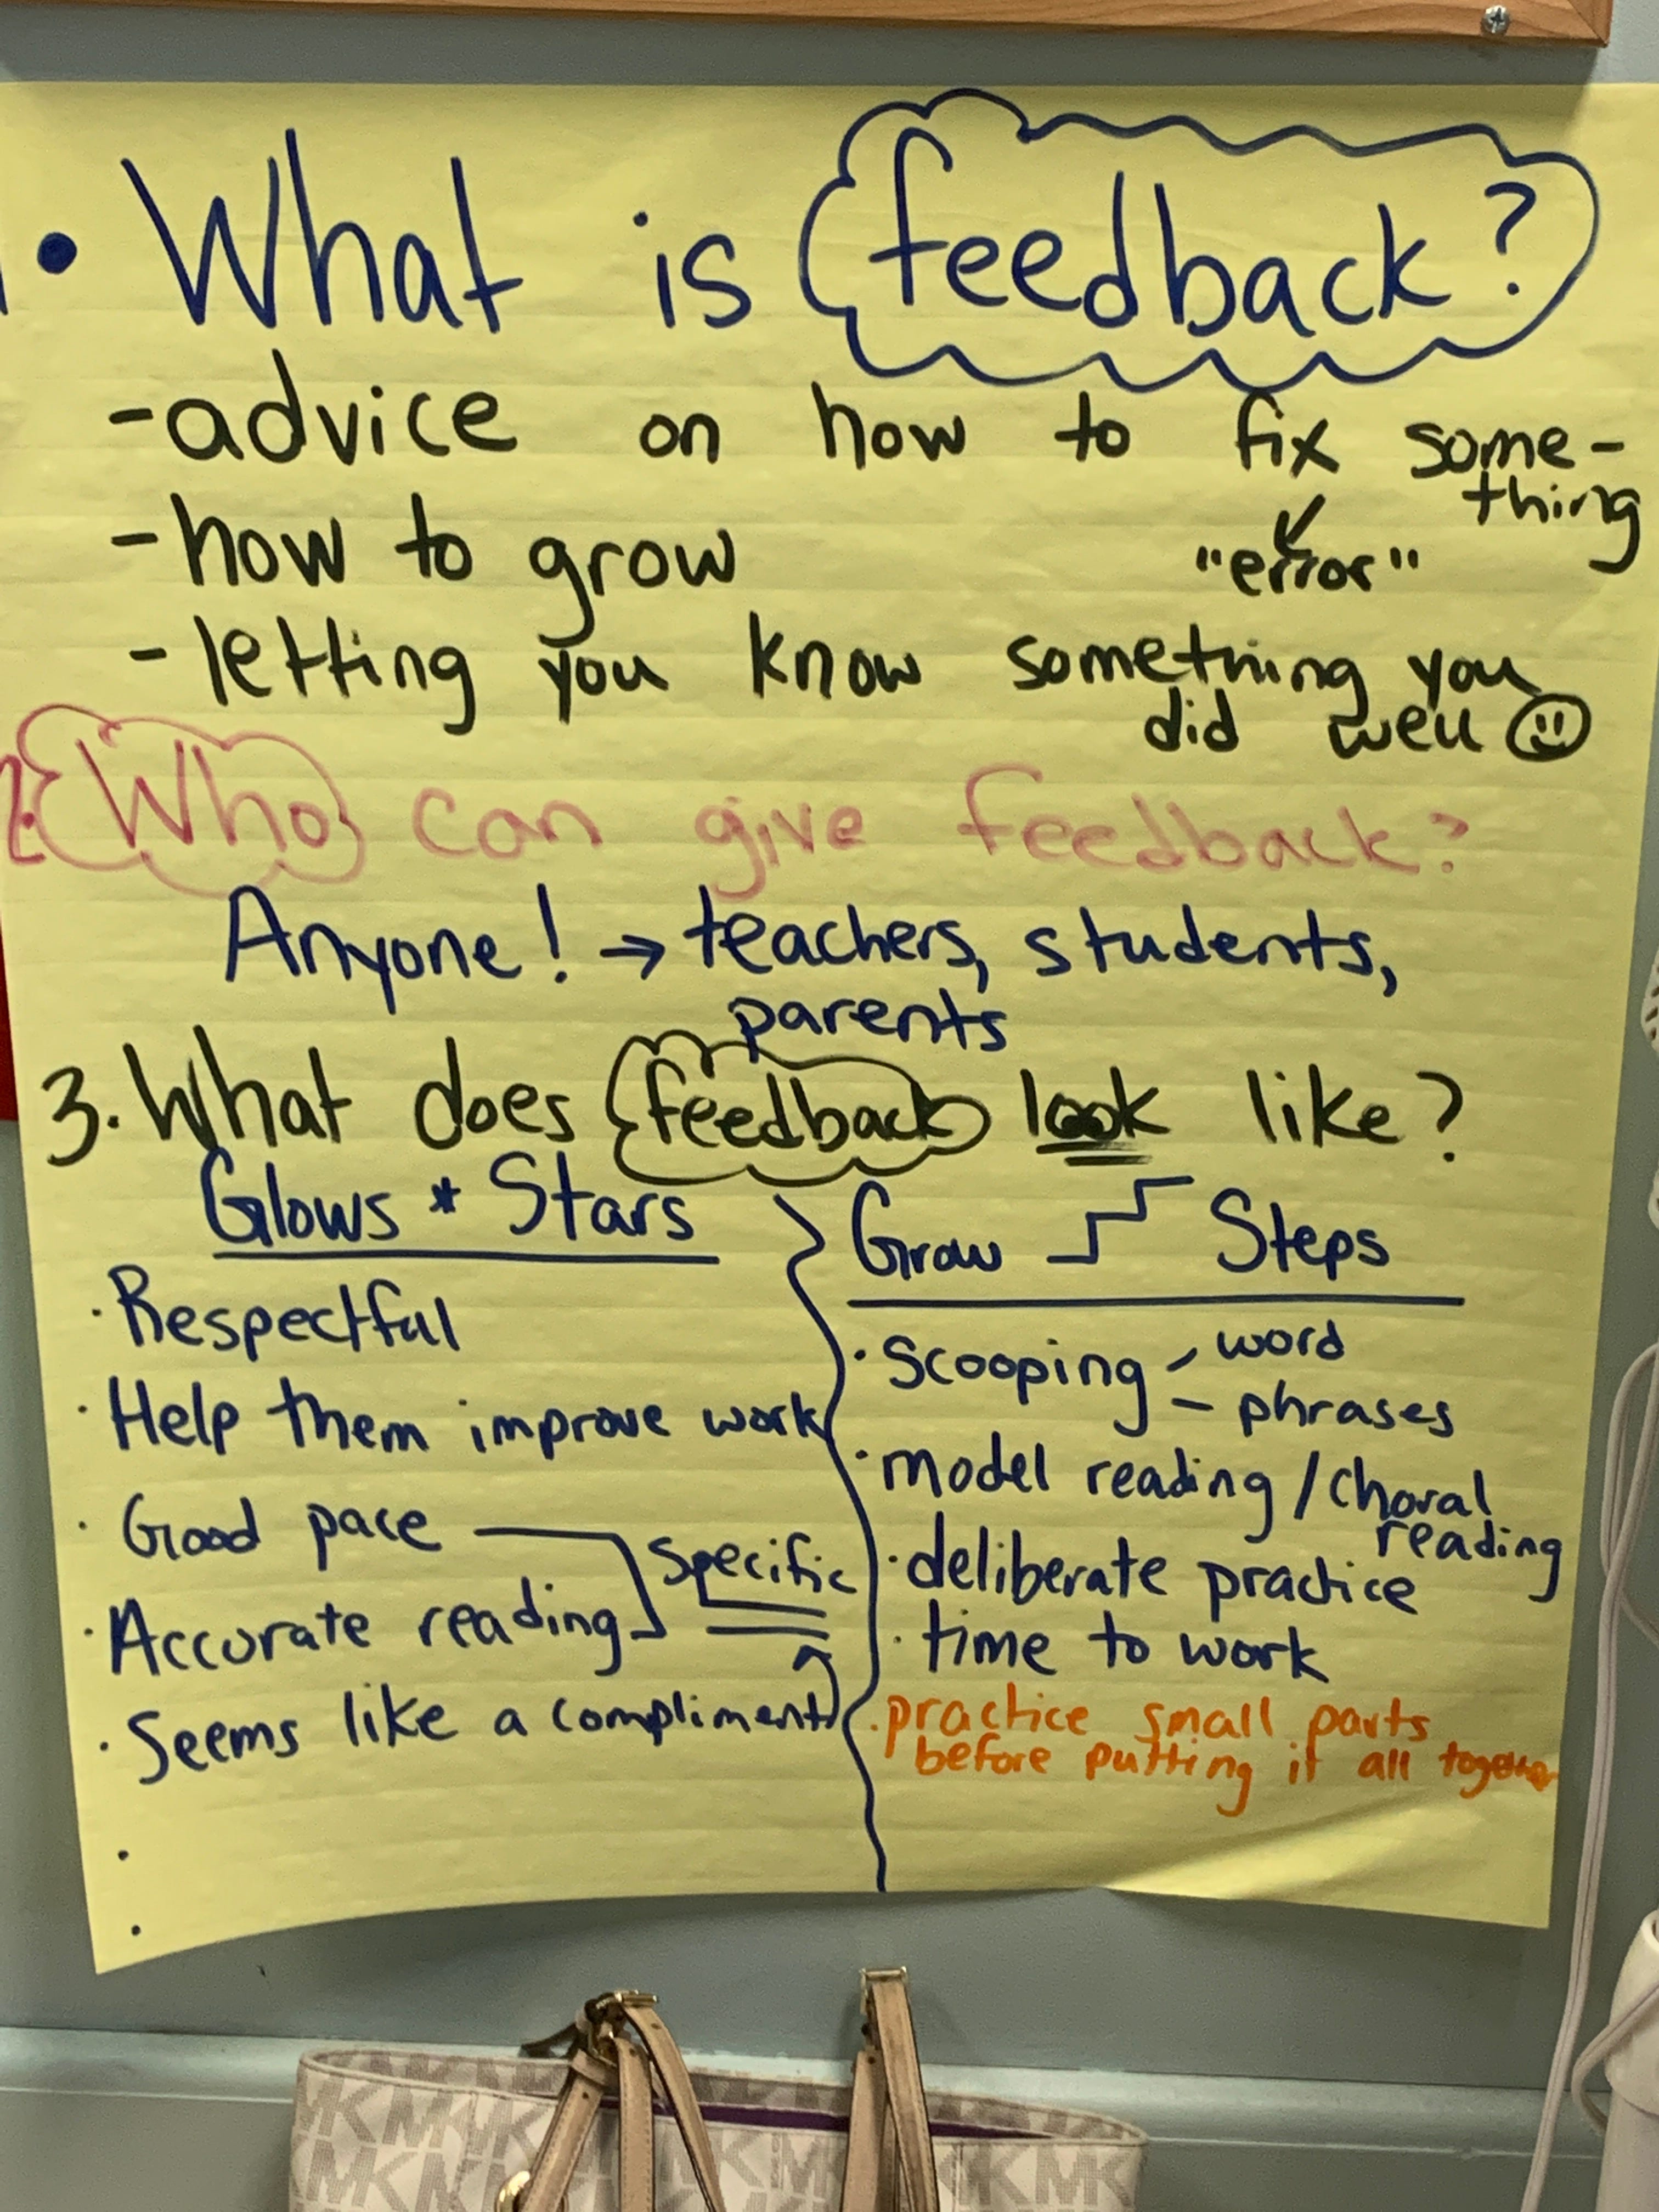 1. What is feedback?
-advice on how to fix some-
thing
-how to grow
"error"
-letting you know something you
did well
2. Who can give feedback?
Anyone! → teachers, students,
parents
3. What does feedback look like?
Glows * Stars
· Respectful
· Help them improve work
· Good pace
Specific
· Accurate reading
· Seems like a compliment
·
·
Grow Steps
· Scooping - word
- phrases
· model reading / choral
reading
· deliberate practice
· time to work
· practice small parts
before putting it all together
MK MK MK